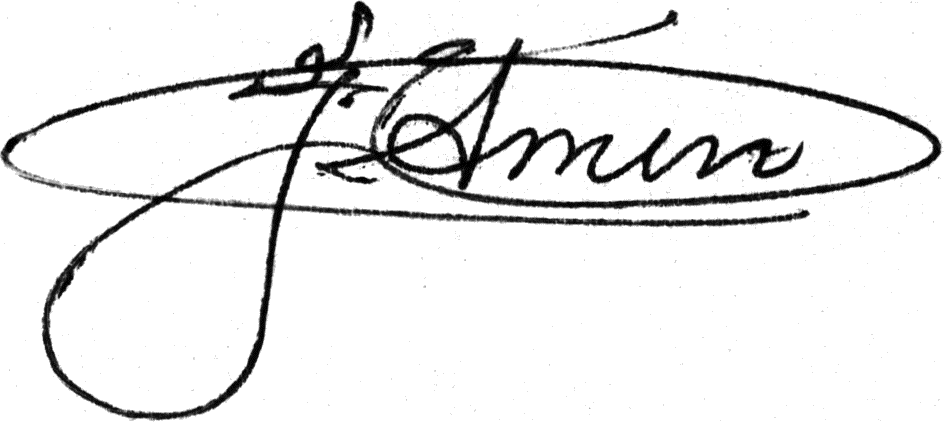 J. Amin